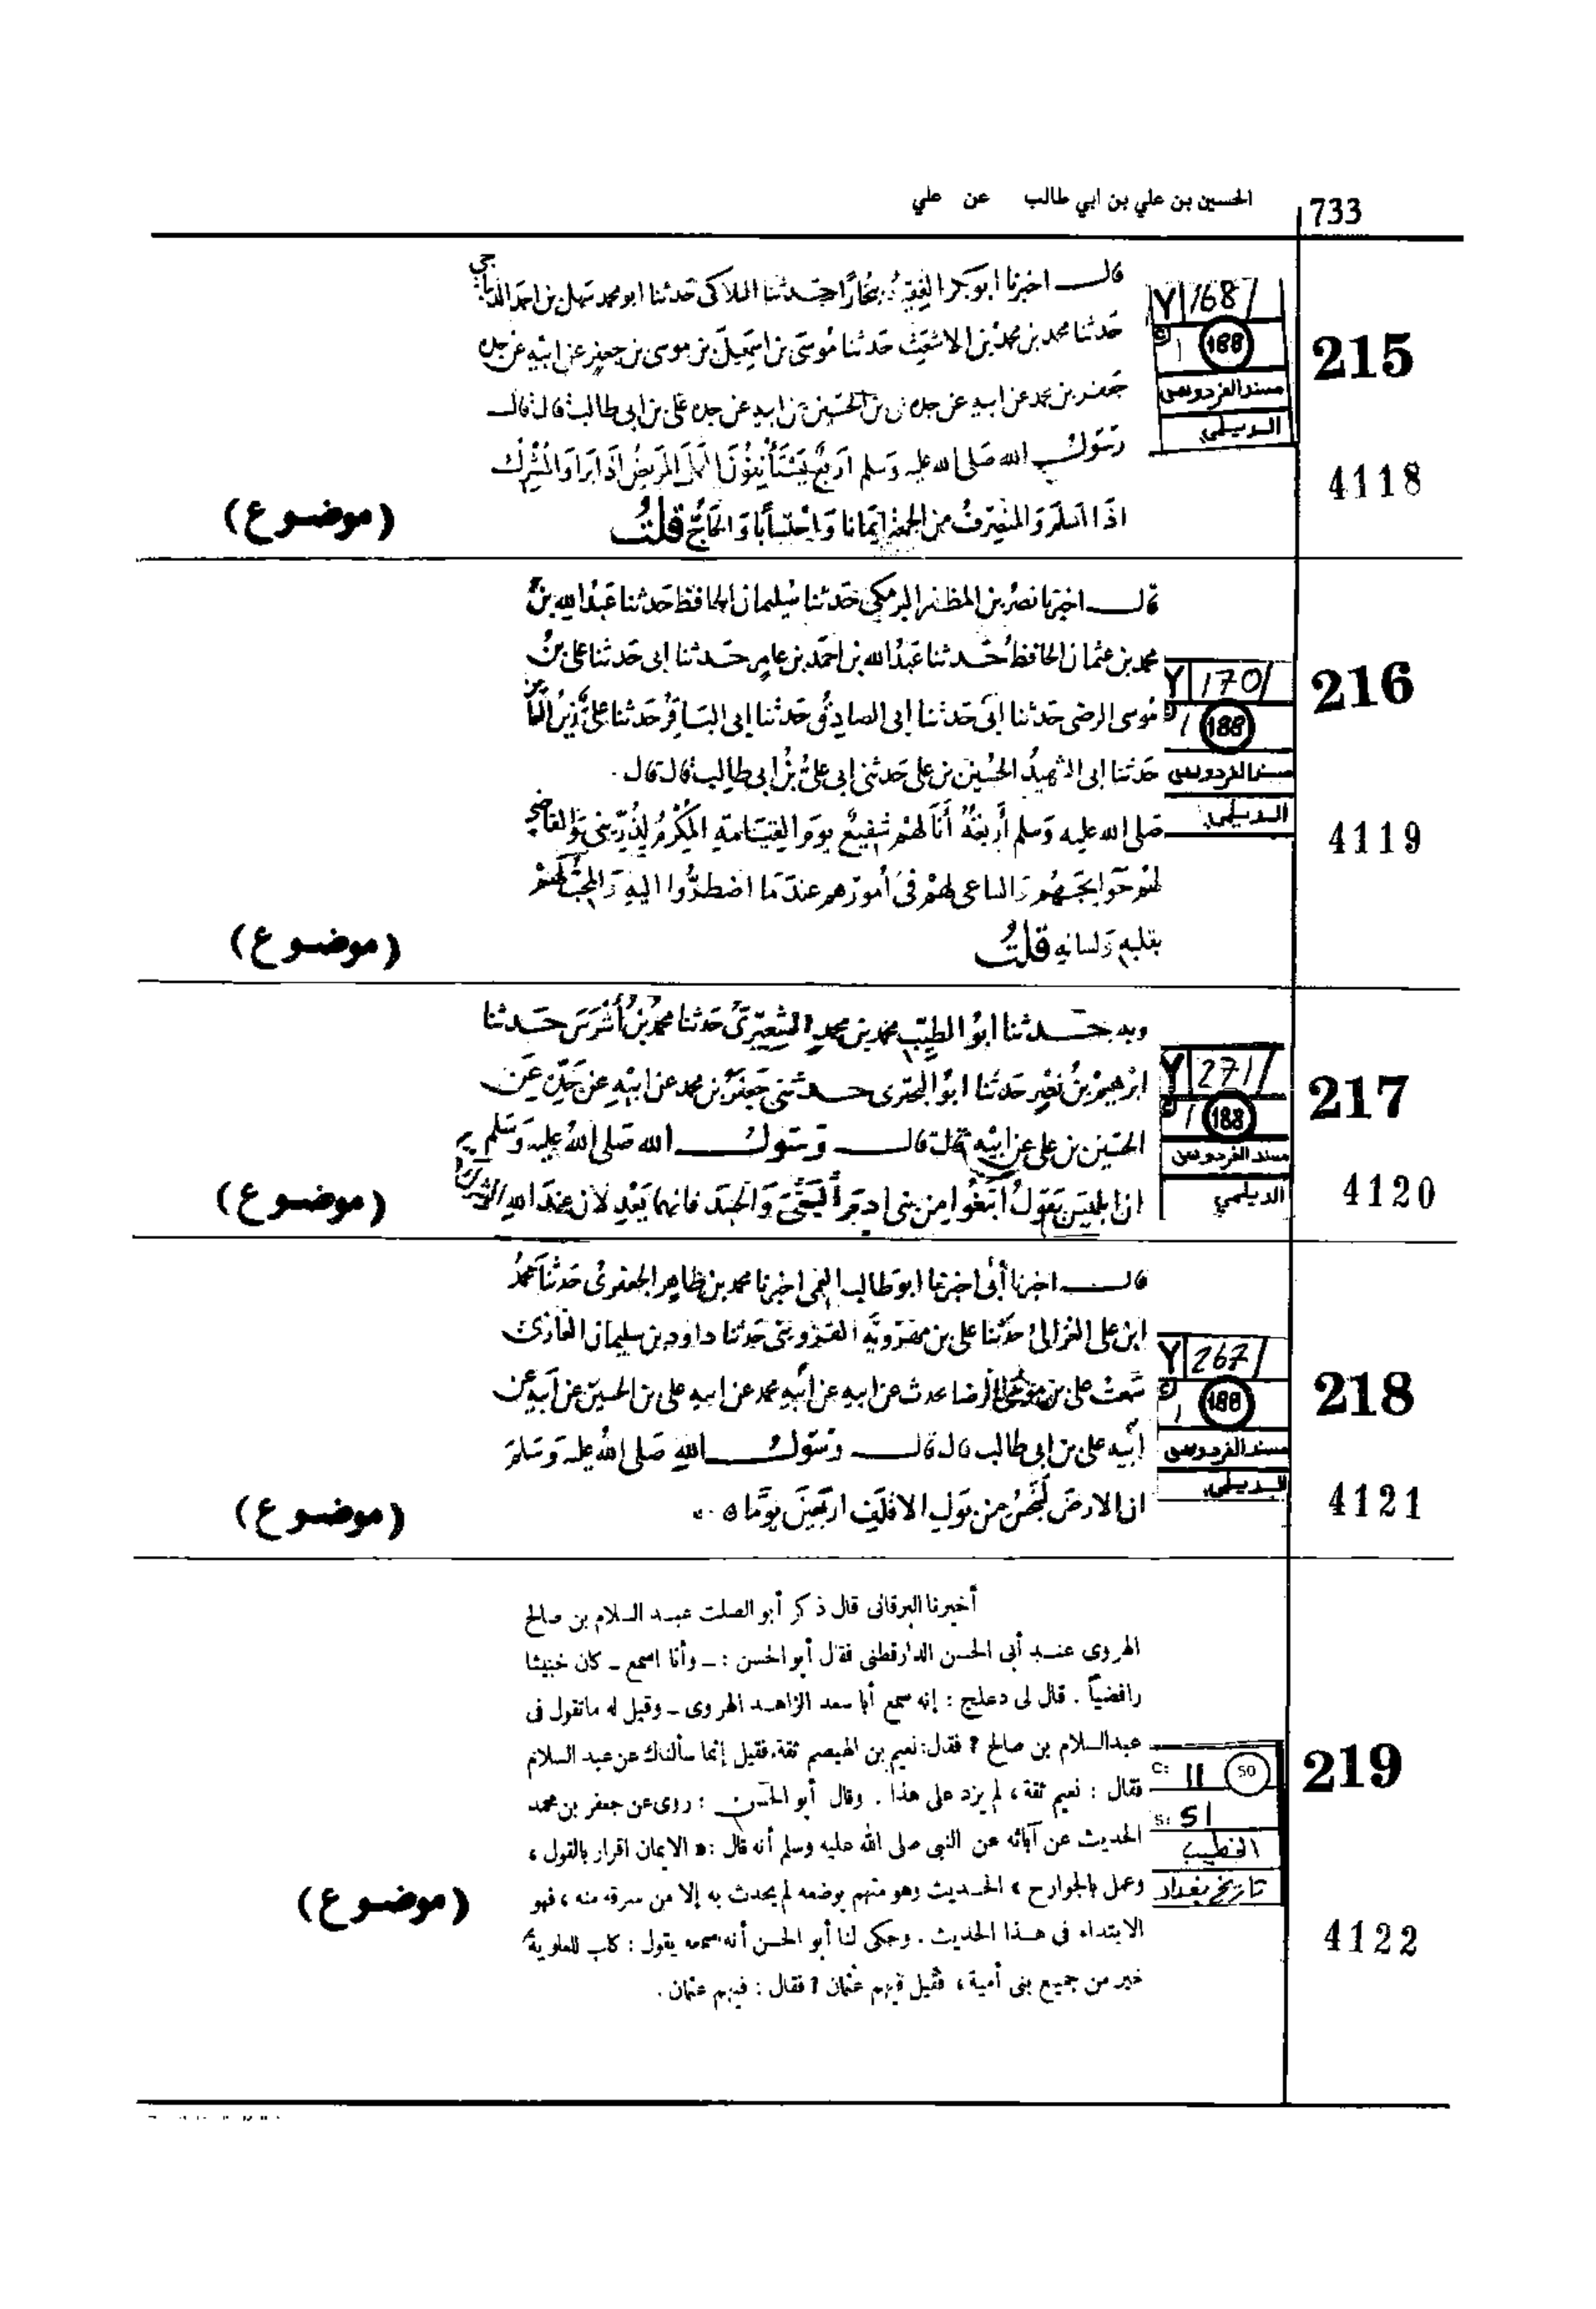 733
الحسين بن علي بن ابي طالب عن علي
215
4118
Y 168
188
مسند الفردوس
الديلمي
قال اخبرنا ابو بكر الفقيه بخارا حدثنا الملاكى حدثنا ابو محمد سهل بن احمد الديباجي
حدثنا محمد بن محمد بن الاشعث حدثنا موسى بن اسمعيل بن موسى بن جعفر عن ابيه عن جده
جعفر بن محمد عن ابيه عن جده بن الحسين عن ابيه عن جده على بن ابى طالب قال قال
رسول الله صلى الله عليه وسلم اربع يستأنفون العمل المريض اذا برا والمشرك
اذا اسلم والمنصرف من الجمعة ايمانا واحتسابا والحاج قلت
(موضوع)
216
4119
Y 170
188
مسند الفردوس
الديلمي
قال اخبرنا نصر بن المظفر البرمكى حدثنا سليمان الحافظ حدثنا عبد الله بن
محمد بن عثمان الحافظ حدثنا عبد الله بن احمد بن عامر حدثنا ابى حدثنا على بن
موسى الرضى حدثنا ابى حدثنا ابى الصادق حدثنا ابى الباقر حدثنا على زين العابدين
حدثنا ابى الشهيد الحسين بن على حدثنى ابى على بن ابى طالب قال قال
صلى الله عليه وسلم أربعة أنا لهم شفيع يوم القيامة المكرم لذريتى والقاضى
لهم حوايجهم والساعى لهم فى أمورهم عندما اضطروا اليه والمحب لهم
بقلبه ولسانه قلت
(موضوع)
217
4120
Y 271
188
مسند الفردوس
الديلمي
وبه حدثنا ابو الطيب محمد بن محمد الشعيرى حدثنا محمد بن أشرس حدثنا
ابرهيم بن نصر حدثنا ابو البخترى حدثنى جعفر بن محمد عن ابيه عن جده عن
الحسين بن على عن ابيه قال قال رسول الله صلى الله عليه وسلم
ان ابليس يقول ابتغوا من بنى ادم البغى والحسد فانهما يعدلان عند الله الشرك
(موضوع)
218
4121
Y 267
188
مسند الفردوس
الديلمي
قال اخبرنا أبى اخبرنا ابو طالب اخبرنا محمد بن طاهر الجعفرى حدثنا محمد
ابن على الغزالى حدثنا على بن مهرويه القزوينى حدثنا داود بن سليمان الغازى
سمعت على بن موسى الرضا يحدث عن ابيه عن أبيه محمد عن ابيه على بن الحسين عن أبيه عن
أبيه على بن ابى طالب قال قال رسول الله صلى الله عليه وسلم
ان الارض لتنجس من بول الاقلف اربعين يوما
(موضوع)
219
4122
C: 11 50
S: 51
الخطيب
تاريخ بغداد
أخبرنا البرقانى قال ذكر أبو الصلت عبد السلام بن صالح
الهروى عند أبى الحسن الدارقطنى فقال أبو الحسن : ـ وأنا اسمع ـ كان خبيثا
رافضياً . قال لى دعلج : إنه سمع أبا سعد الزاهد الهروى ـ وقيل له ما تقول فى
عبد السلام بن صالح ؟ فقال: نعيم بن الهيصم ثقة. فقيل إنما سألناك عن عبد السلام
فقال : نعيم ثقة ، لم يزد على هذا . وقال أبو الحسن : روى عن جعفر بن محمد
الحديث عن آبائه عن النبى صلى الله عليه وسلم أنه قال : « الايمان اقرار بالقول ،
وعمل بالجوارح » الحديث وهو متهم بوضعه لم يحدث به إلا من سرقه منه ، فهو
الابتداء فى هذا الحديث . وحكى لنا أبو الحسن أنه سمعه يقول : كلب للعلوية
خير من جميع بنى أمية ، فقيل فيهم عثمان ؟ فقال : فيهم عثمان .
(موضوع)